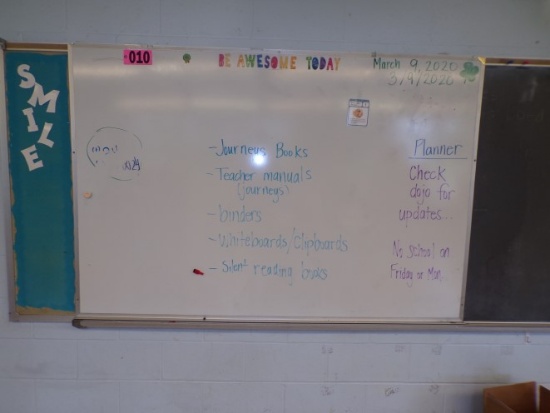 SMILE
010
BE AWESOME TODAY
March 9, 2020
3/9/2020
- Journeys Books
- Teacher manuals
(journeys)
- binders
- whiteboards/clipboards
- Silent reading books
Planner
Check
dojo for
updates...
No school on
Friday or Mon...